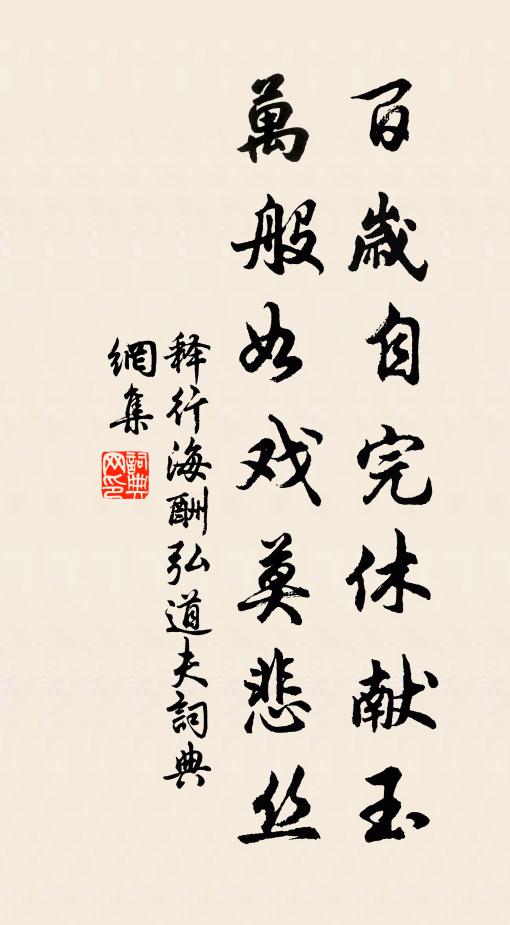 百歲自完休献玉
萬般如戏莫悲丝
释行海酬弘道夫詞典
網集
詞典
网印